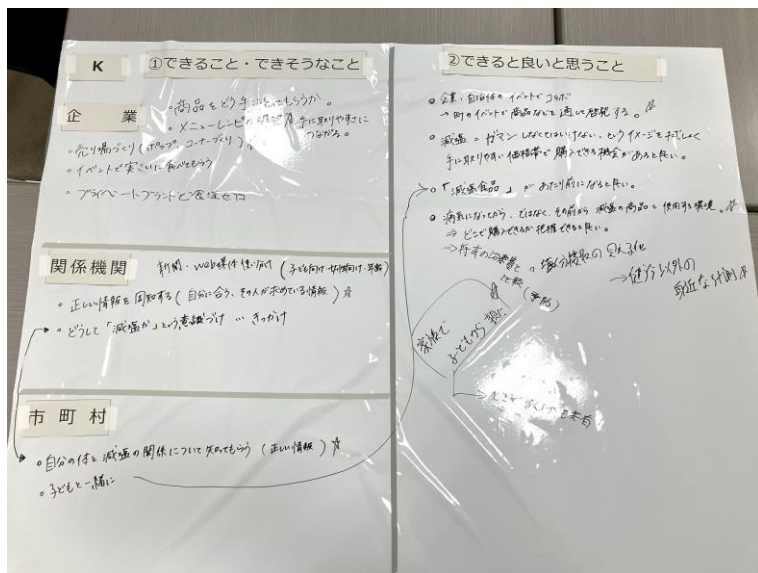 K
①できること・できそうなこと
企業
・商品をどう手にとってもらうか。
・メニューレシピの 手に取りやすさに
つながる。
・売り場づくり(ポップ、コーナーづくり)
・イベントで実さいに食べてもらう
・プライベートブランドと
関係機関
新聞・Web媒体 使い分け(子ども向け・女性向け・
・正しい情報を周知する(自分に合う、その人が求めている情報)☆
・どうして「減塩か」という意識づけ … きっかけ
市町村
・自分の体と減塩の関係について知ってもらう(正しい情報)☆
・子どもと一緒に
②できると良いと思うこと
・企業・自治体のイベントでコラボ
→町のイベントで商品などを通して啓発する。☆
・減塩=ガマンしなくてはいけない、というイメージを
手に取りやすい価格帯で購入できる機会があると良い。
・「減塩食品」があたり前になると良い。
・病気になってから、ではなく、その前から減塩の商品を使用する環境。☆
⇒どこで購入できるか把握できると良い。
→将来の 比較(予防)
・塩分摂取の見える化
→健診以外の
身近な計測☆
家族で
子どもから親に